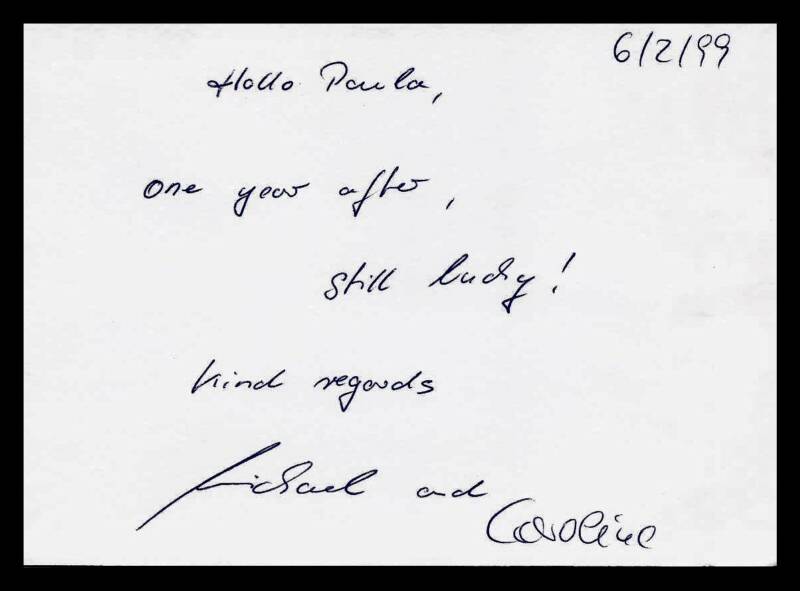 6/2/99
Hallo Paula,
one year after,
still lucky!
Kind regards
Michael and
Caroline